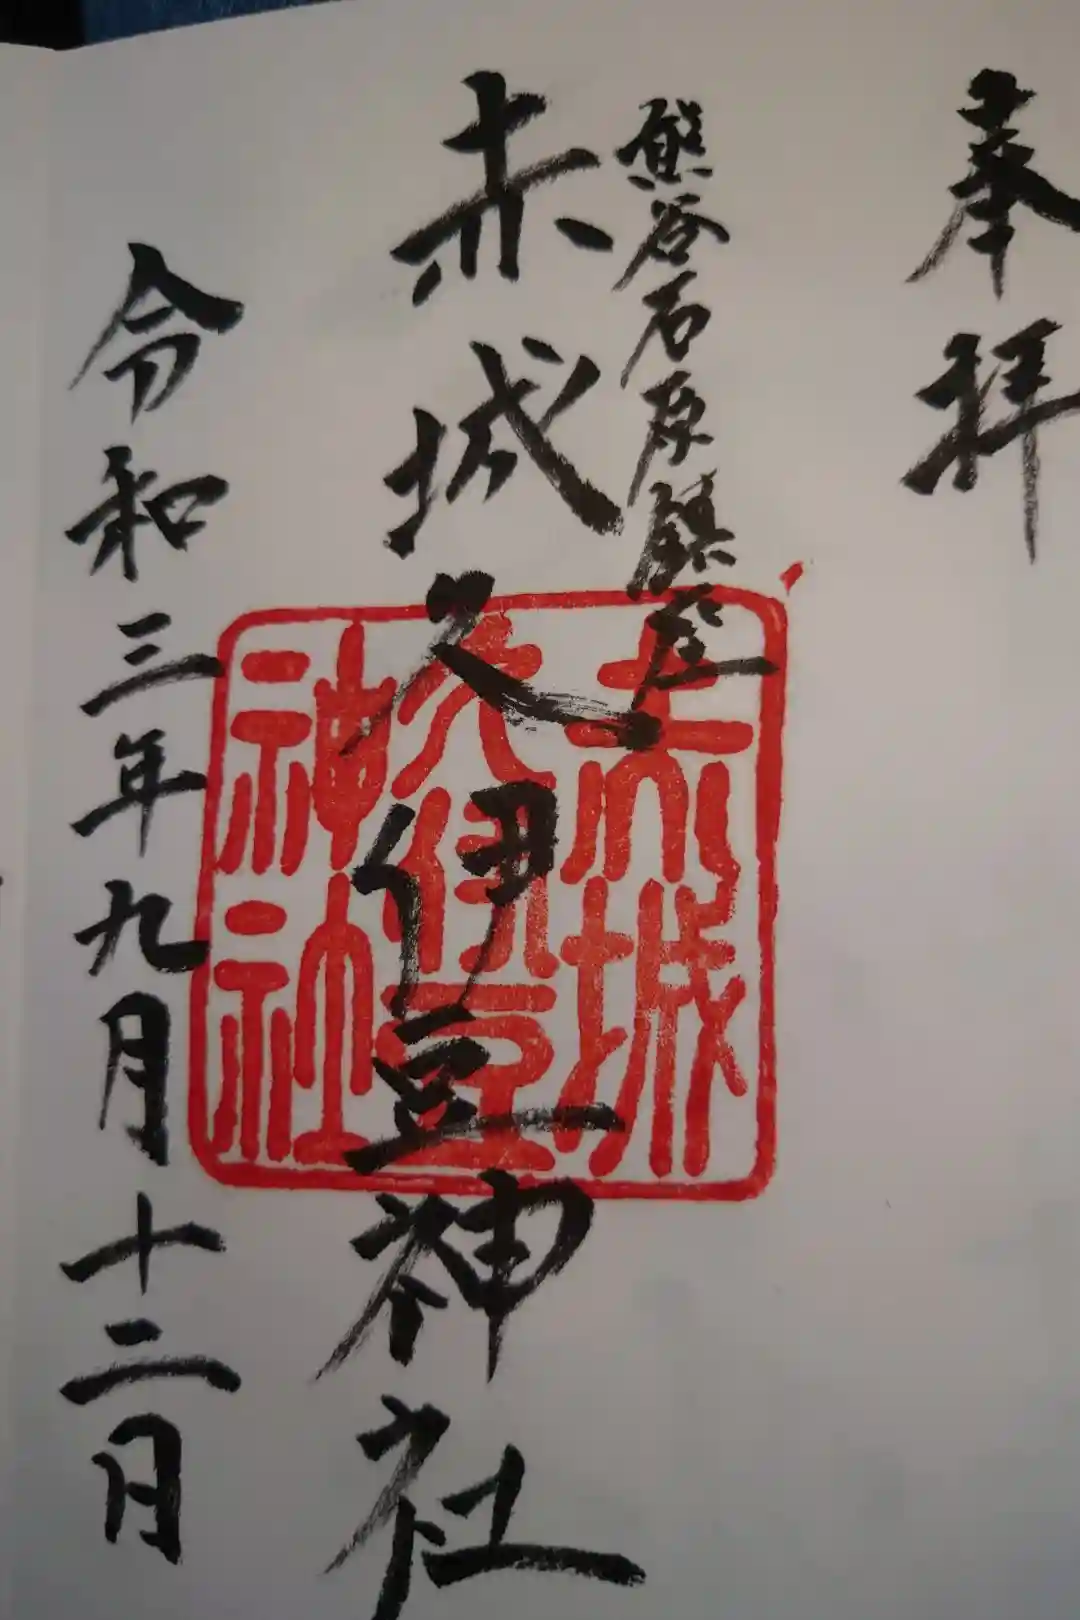 奉拝
熊谷石原鎮座
赤城久伊豆神社
赤城
久伊豆
神社
令和三年九月十二日